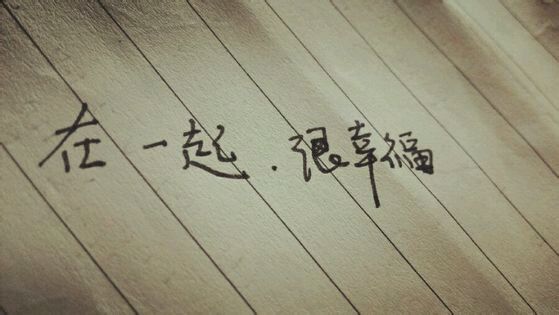 在一起.很幸福